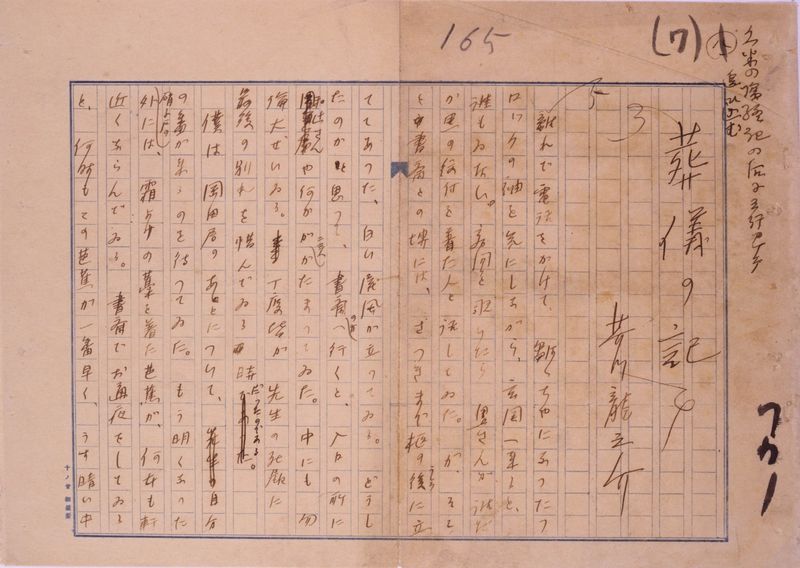 165
(7)
葬儀の記
芥川龍之介
離れで電話をかけて、皺くちやになつたフ
ロックの袖を気にしながら、玄関へ来ると、
誰もゐない。客間を覗いたら、奥さんが誰だ
か黒の紋付を着た人と話してゐた。が、そこ
と書斎との堺には、さつきまで柩の後に立
ててあつた、白い屏風が立つてゐる。どうし
たのかと思つて、書斎の方へ行くと、入口の所に
和辻さんや何かが二三人かたまつてゐた。中にも勿
論大ぜいゐる。丁度皆が先生の死顔に
最後の別れを惜んでゐる時だつたのである。
僕は岡田君のあとについて、自分
の番が来るのを待つてゐた。もう明くなつた
硝子戸の外には、霜よけの藁を着た芭蕉が、何本も軒
近くならんでゐる。書斎でお通夜をしてゐる
と、何時もこの芭蕉が一番早く、うす暗い中